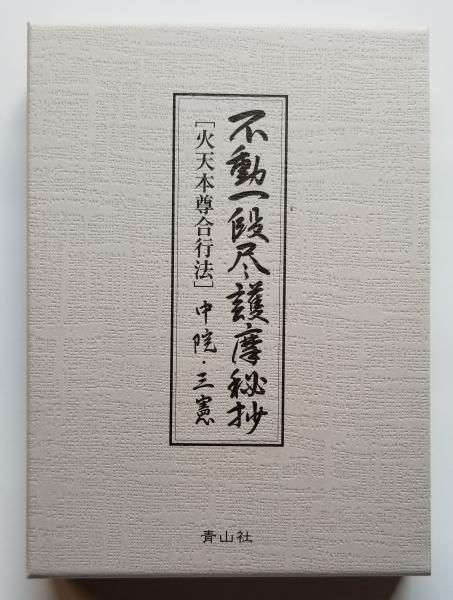 不動一段尽護摩秘抄
［火天本尊合行法］ 中院・三憲
青山社